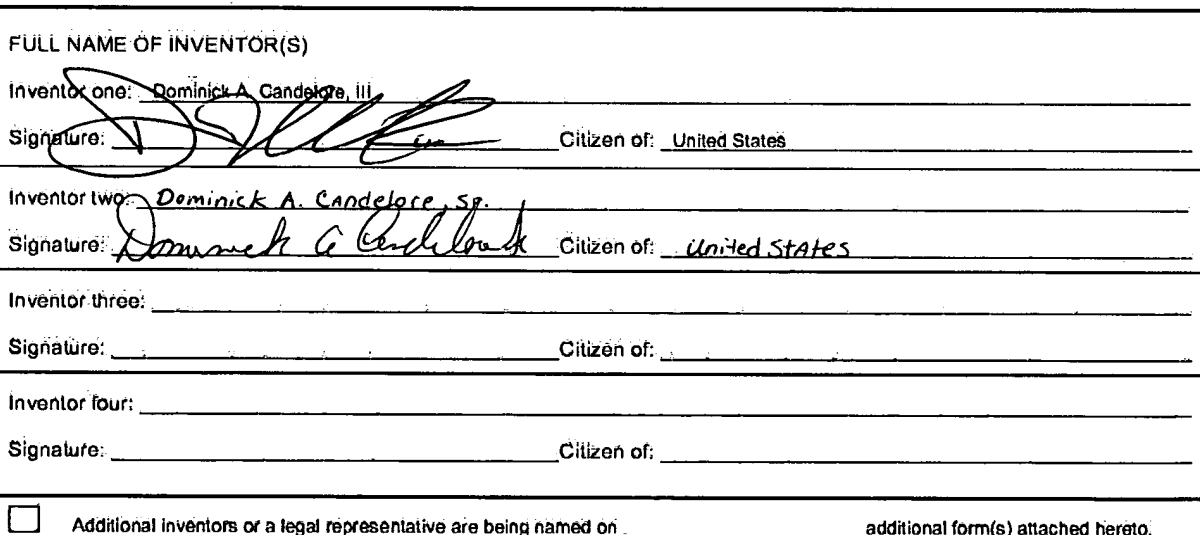 FULL NAME OF INVENTOR(S)
Inventor one: Dominick A. Candelore, III
Signature: Citizen of: United States
Inventor two: Dominick A. Candelore, Sr.
Signature: Dominick A Candelore Citizen of: United States
Inventor three:
Signature: Citizen of:
Inventor four:
Signature: Citizen of:
Additional inventors or a legal representative are being named on additional form(s) attached hereto.